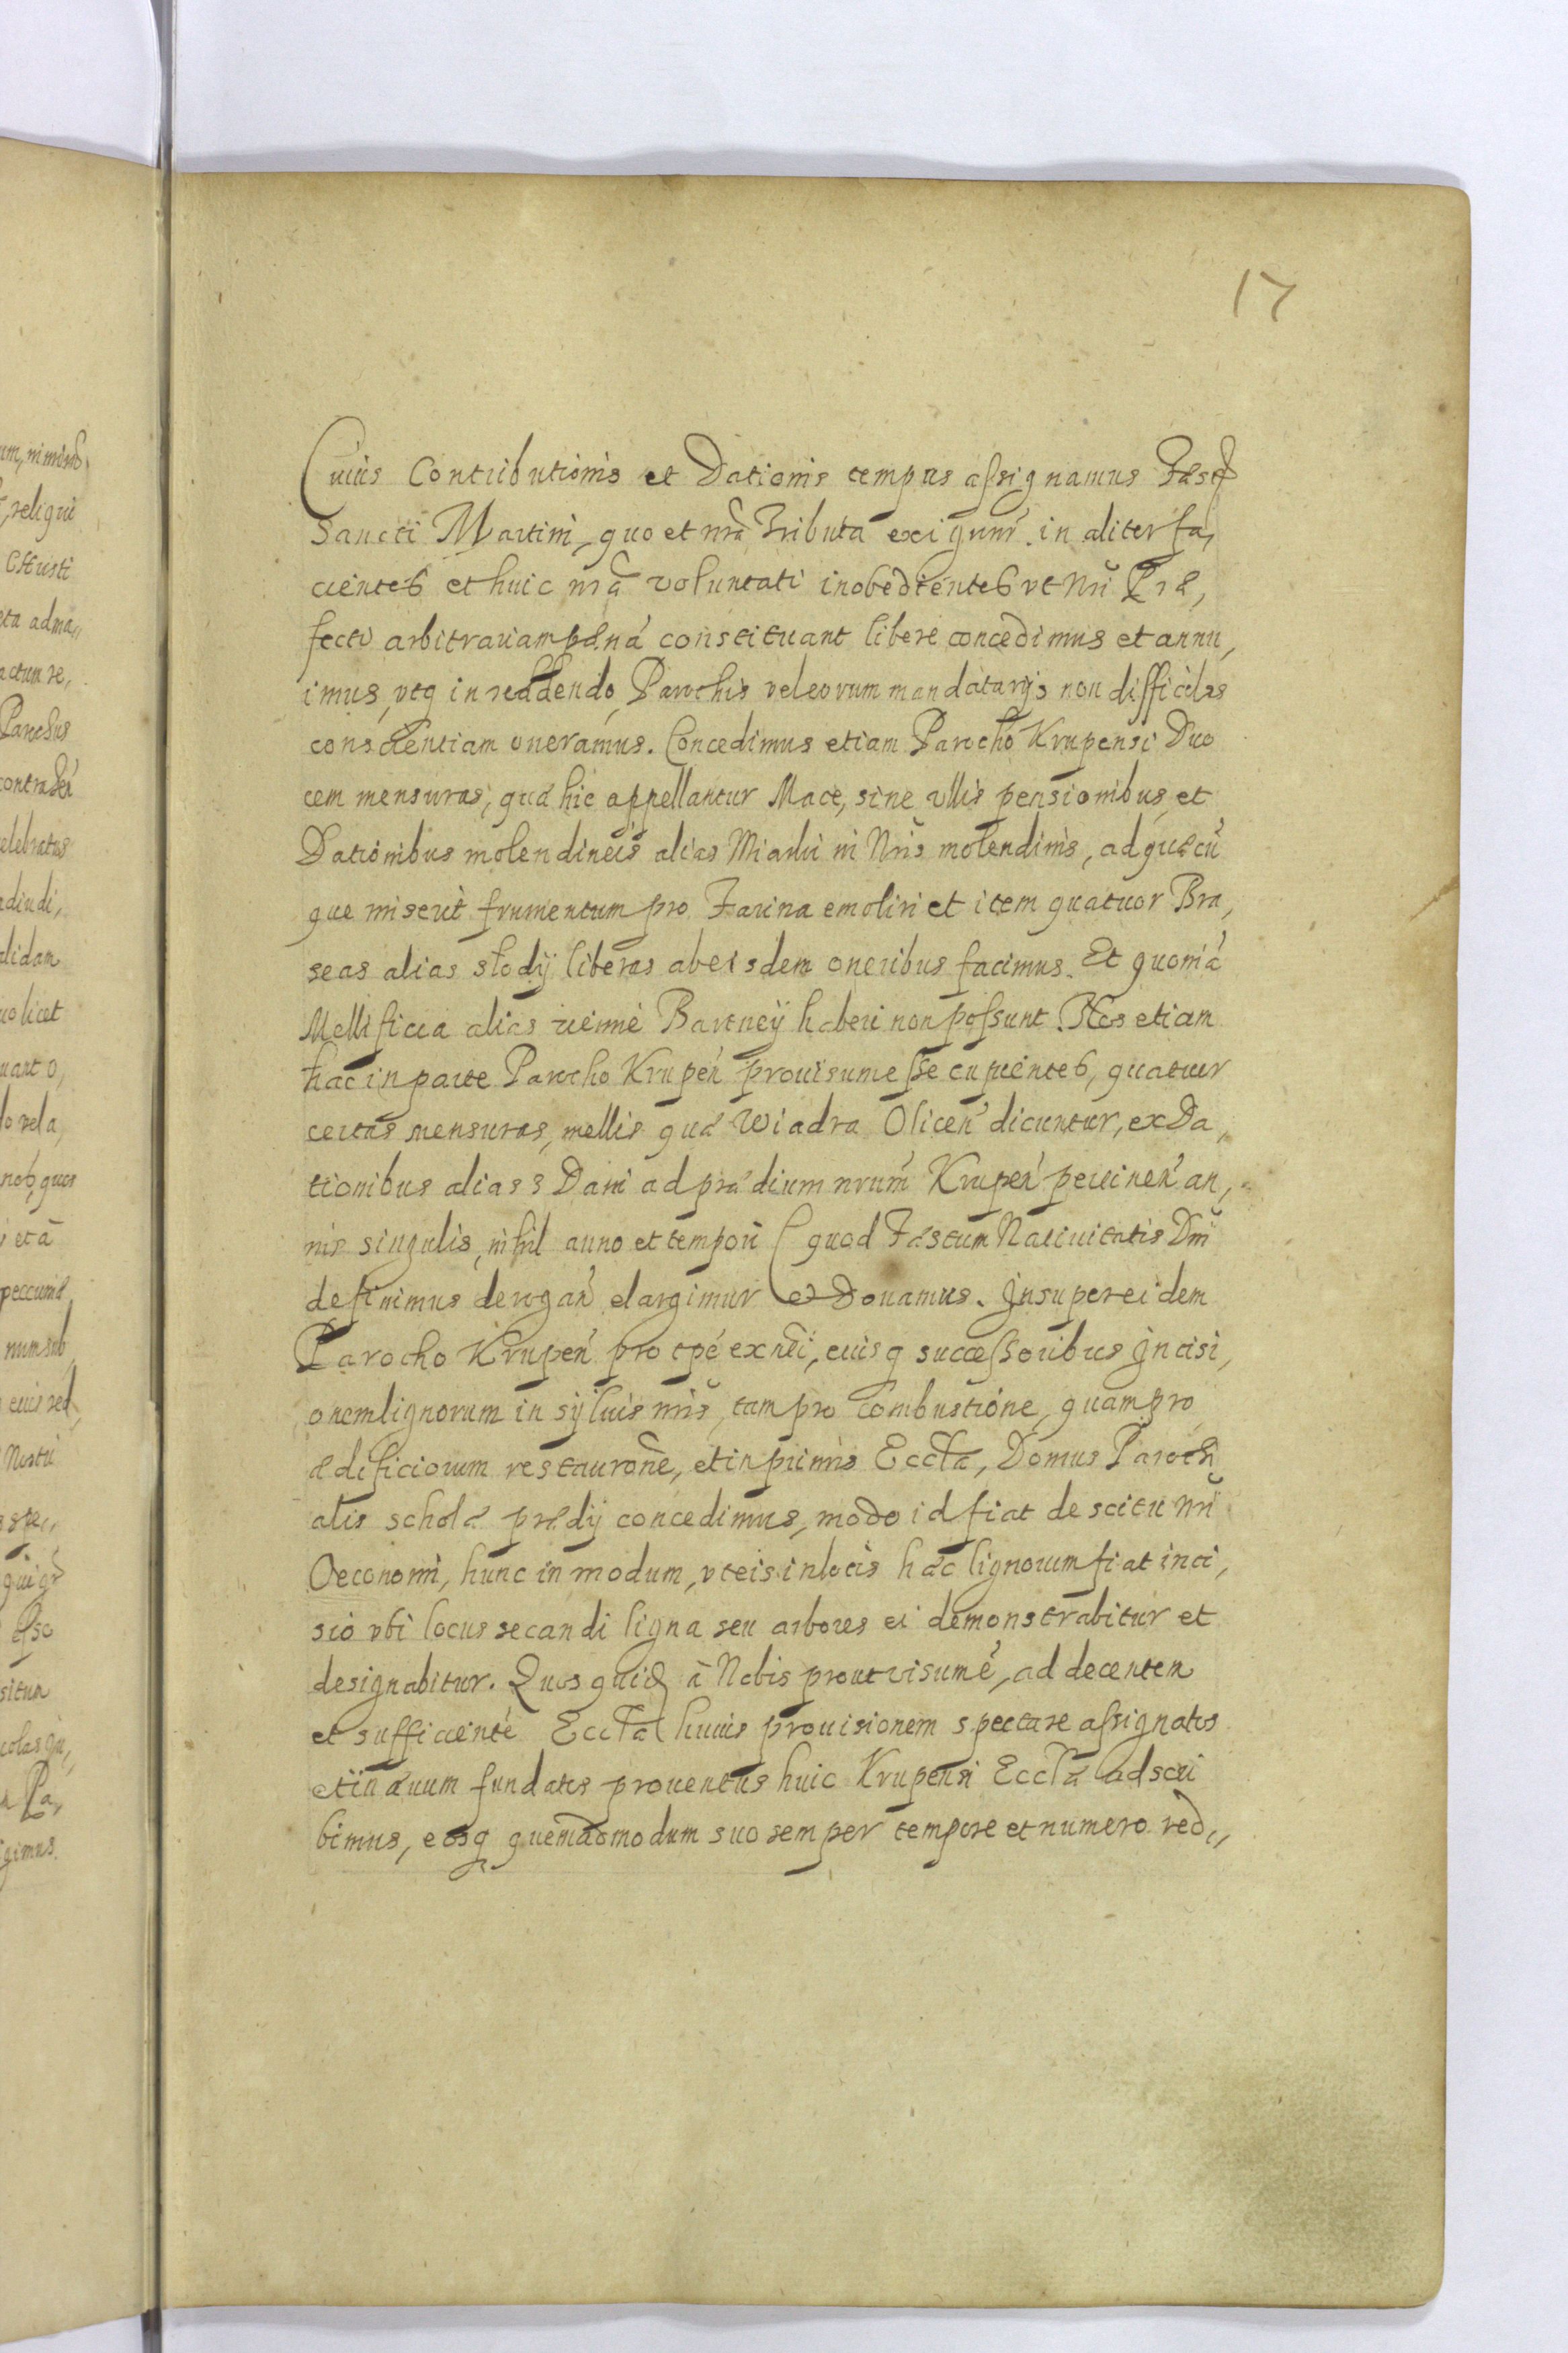 17
Cuius Contributionis et Dationis tempus assignamus Fest
Sancti Martini, quo et nrã Tributa exigunr̃. in aliter fa,
cientes et huic nrã voluntati inobedientes vt Nrĩ Præ,
fecti arbitrariam pæná constituant libere concedimus et annu,
imus, vtq in reddendo Parochis vel eorum mandatarijs non difficiles
conscientiam oneramus. Concedimus etiam Parocho Krupensi Duo
cem mensuras, quæ hic appellantur Mace, sine vllis pensionibus et
Dationibus molendineis alias Miarki in Nrĩs molendinis, ad quæcũ
que miserit frumentum pro Farina emoliri et item quatuor Bra,
seas alias słody liberas ab eisdem oneribus facimus. Et quoniá
Mellificia alias Bartneÿ haberi non possunt. Nos etiam
hac in parte Parocho Krupeń prouisum esse cupientes, quatuor
certas mensuras, mellis quæ Wiadra Oliceń dicuntur, ex Da,
tionibus alias s Dani ad prædium nrum Krupeń pertineń an,
nis singulis, nihil anno et tempori (quod Festum Natiuitatis Dnĩ
definimus derogań elargimur et Donamus. Insuper eidem
Parocho Krupeń pro tpé exnĩ, eiusq successoribus Incisi,
onem lignorum in syluis nrĩs, tam pro Combustione, quam pro
ædificiorum restauronẽ, et in primis Eccła, Domus Parochi
alis scholæ prædij concedimus, modo id fiat de scitu Nrĩ
Oeconomi, hunc in modum, vt eis in locis hæc lignorum fiat inci,
sio vbi locus secandi ligna seu arbores ei demonstrabitur et
designabitur. Quos quid à Nobis prout visum é, ad decentem
et sufficienté Eccła huius prouisionem spectare assignatos
et in æuum fundatos prouentus huic Krupensi Eccła adscri
bimus, eosq quemadmodum suo semper tempore et numero red,,